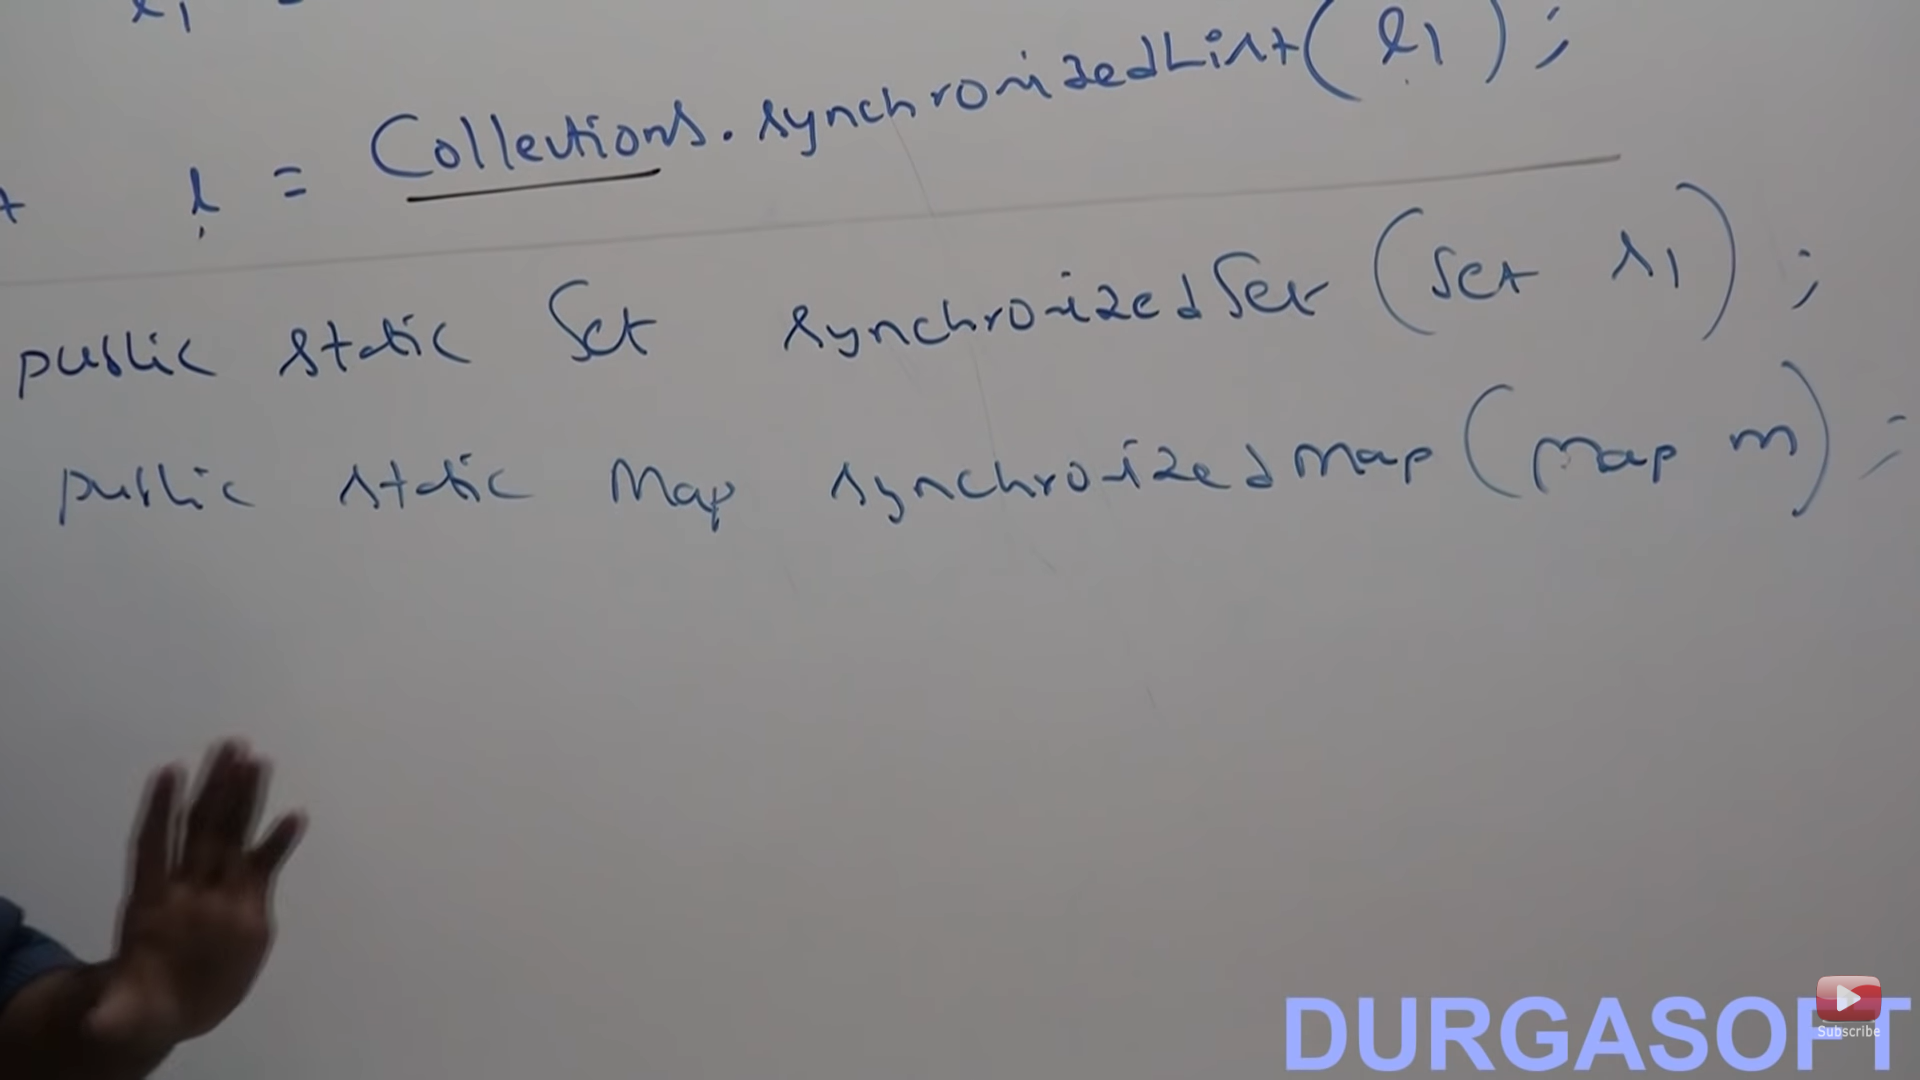 l1
l = Collections.synchronizedList(l1);
public static Set synchronizedSet(Set s1);
public static Map synchronizedMap(Map m);
DURGASOFT
Subscribe